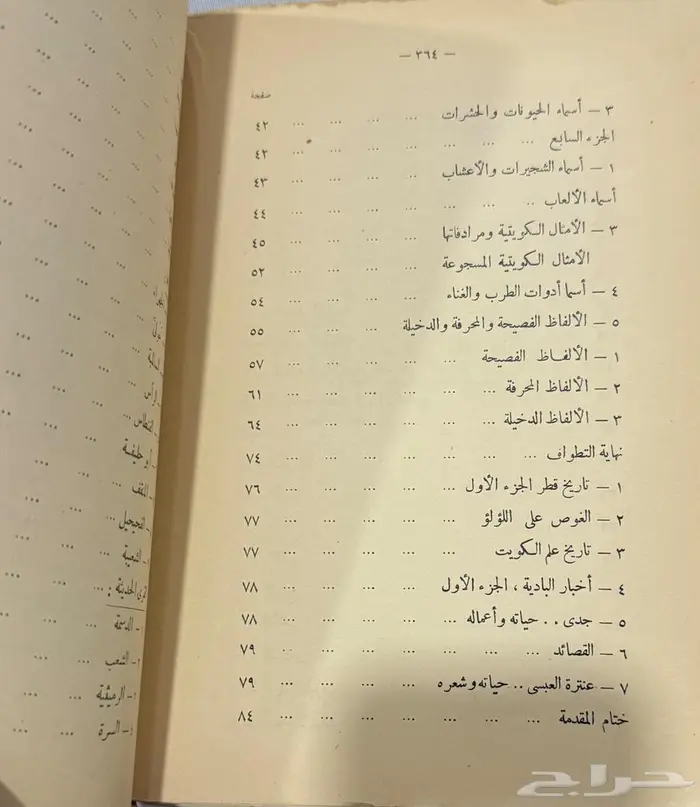 — ٣٦٤ —
صفحة
٣ — أسماء الحيونات والحشرات ... ... ... ... ٤٢
الجزء السابع ... ... ... ... ... ٤٢
١ — أسماء الشجيرات والأعشاب ... ... ... ... ٤٣
أسماء الألعاب .. ... ... ... ... ... ٤٤
٣ — الأمثال الكويتية ومرادفاتها ... ... ... ... ٤٥
الأمثال الكويتية المسجوعة ... ... ... ... ٥٢
٤ — أسما أدوات الطرب والغناء ... ... ... ... ٥٤
٥ — الألفاظ الفصيحة والمحرفة والدخيلة ... ... ... ٥٥
١ — الألفاظ الفصيحة ... ... ... ... ... ٥٧
٢ — الألفاظ المحرفة ... ... ... ... ... ٦١
٣ — الألفاظ الدخيلة ... ... ... ... ... ٦٤
نهاية التطواف ... ... ... ... ... ... ٧٤
١ — تاريخ قطر الجزء الأول ... ... ... ... ٧٦
٢ — الغوص على اللؤلؤ ... ... ... ... ... ٧٧
٣ — تاريخ علم الكويت ... ... ... ... ... ٧٧
٤ — أخبار البادية ، الجزء الأول ... ... ... ... ٧٨
٥ — جدى . . حياته وأعماله ... ... ... ... ... ٧٨
٦ — القصائد ... ... ... ... ... ... ٧٩
٧ — عنترة العبسى .. حياته وشعره ... ... ... ... ٧٩
ختام المقدمة ... ... ... ... ... ... ٨٤
أبو حليفة
الفحيحيل
الشعيبة
الحديثة :
الدسمة
الشعب
الرميثية
السرة
حراج